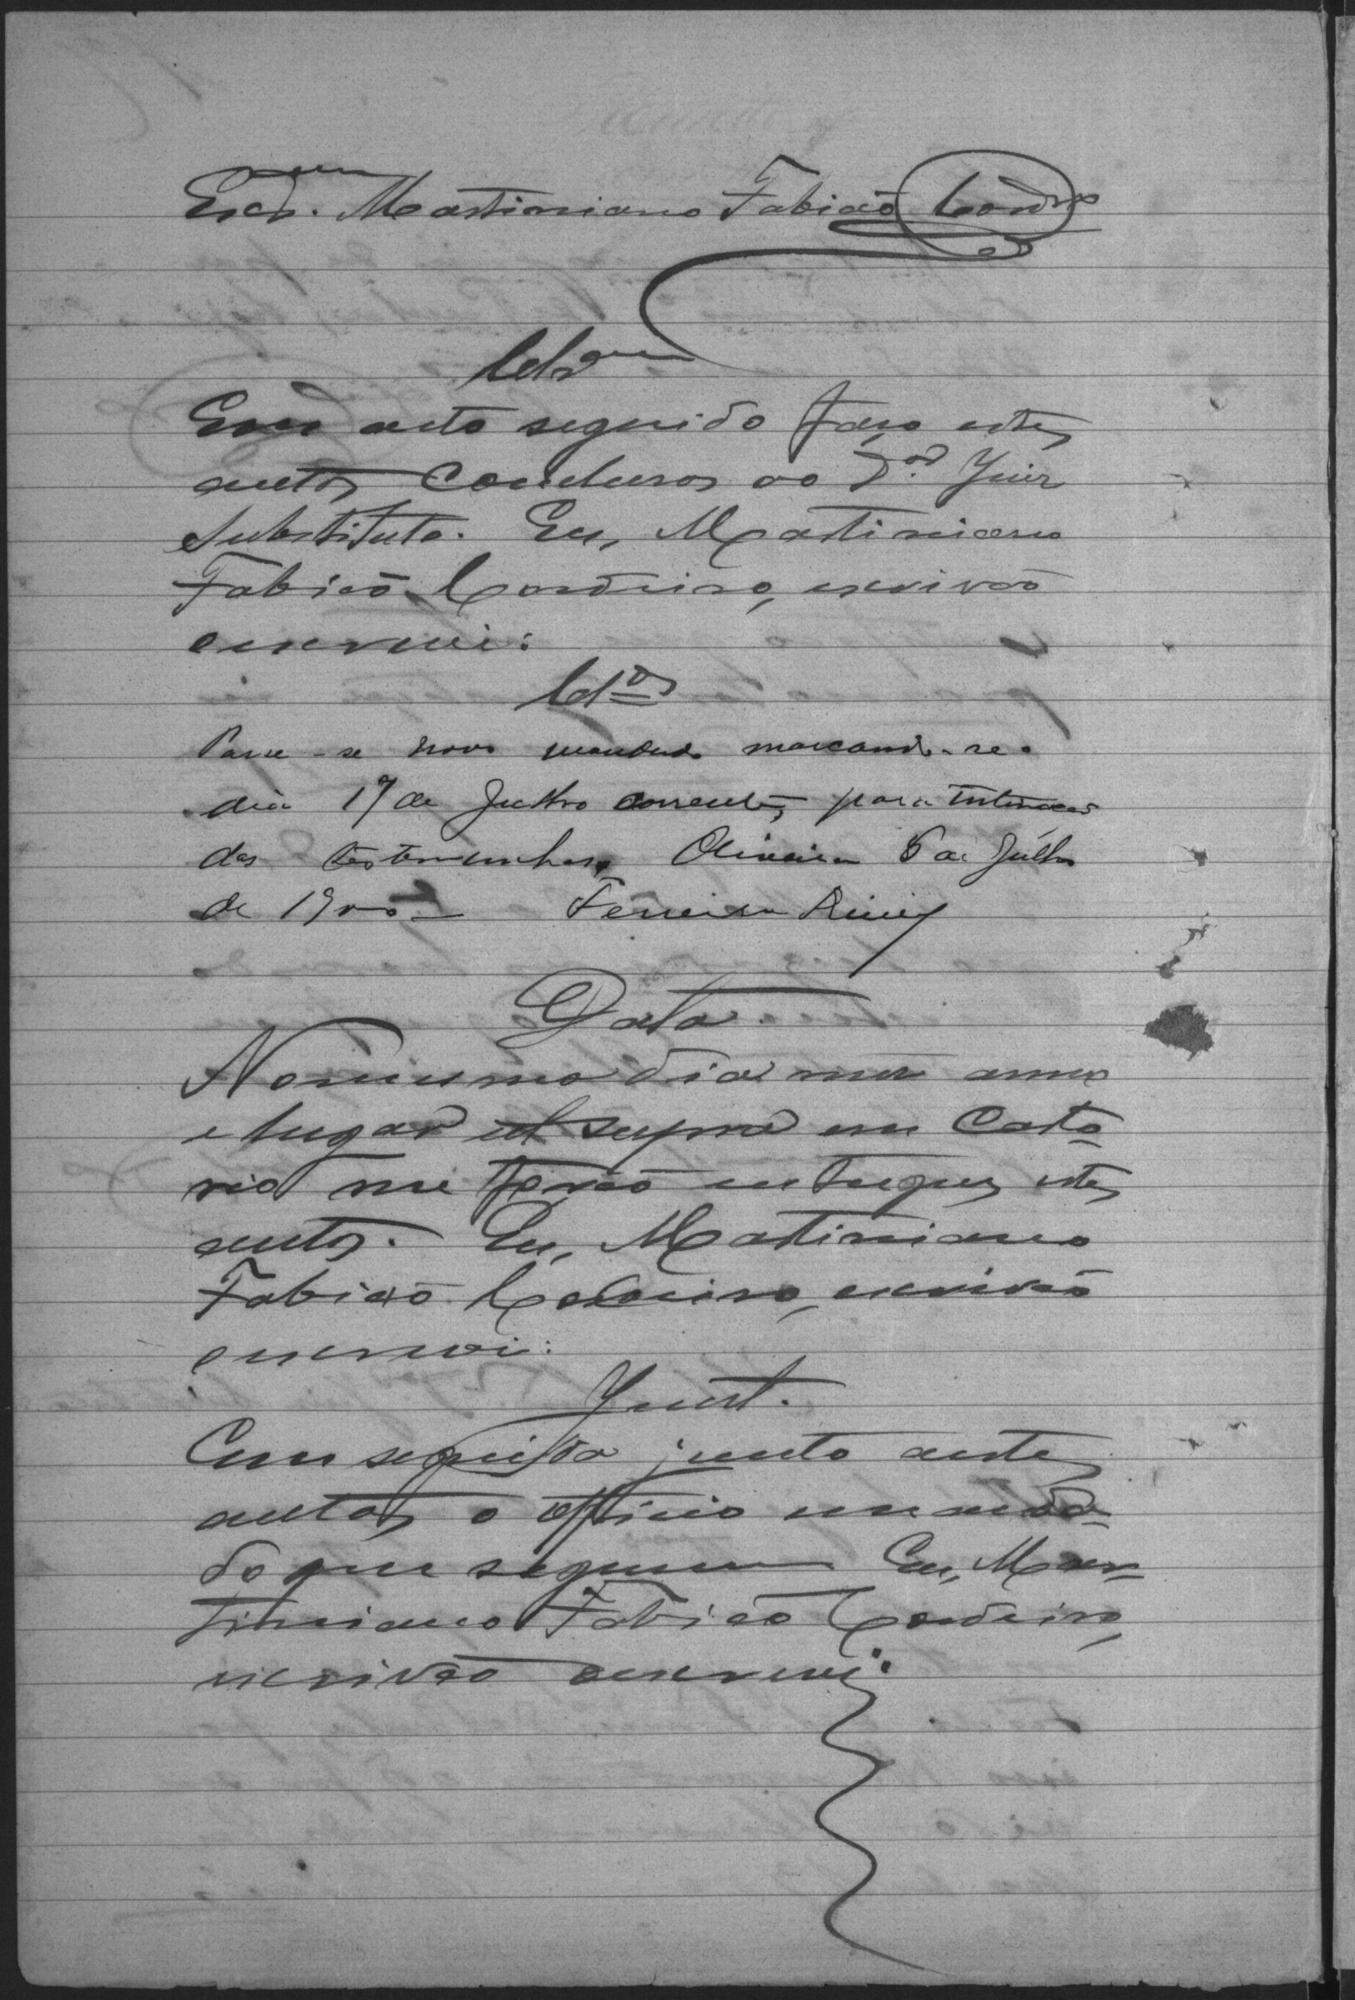 Escr.ᵃᵐ Martiniano Fabião Cordro
Clsᵃᵐ
Em acto seguido faço estes
autos conclusos ao Dor. Juiz
Substituto. Eu, Martiniano
Fabião Cordeiro, escrivão
escrevi:
Clos
Passe-se novo mandado marcando-se o
dia 17 de Julho corrente, para intimação
das testemunhas, Oliveira 6 de Julho
de 1900 — Ferreira
Data.
No mesmo dia mez anno
e lugar ut supra em Carto-
rio me forão entregues estes
autos. Eu, Martiniano
Fabião Cordeiro, escrivão
escrevi:
Junt.
Em seguida junto aestes
autos o officio e manda-
do que seguem Eu, Mar-
tiniano Fabião Cordeiro,
escrivão escrevi: